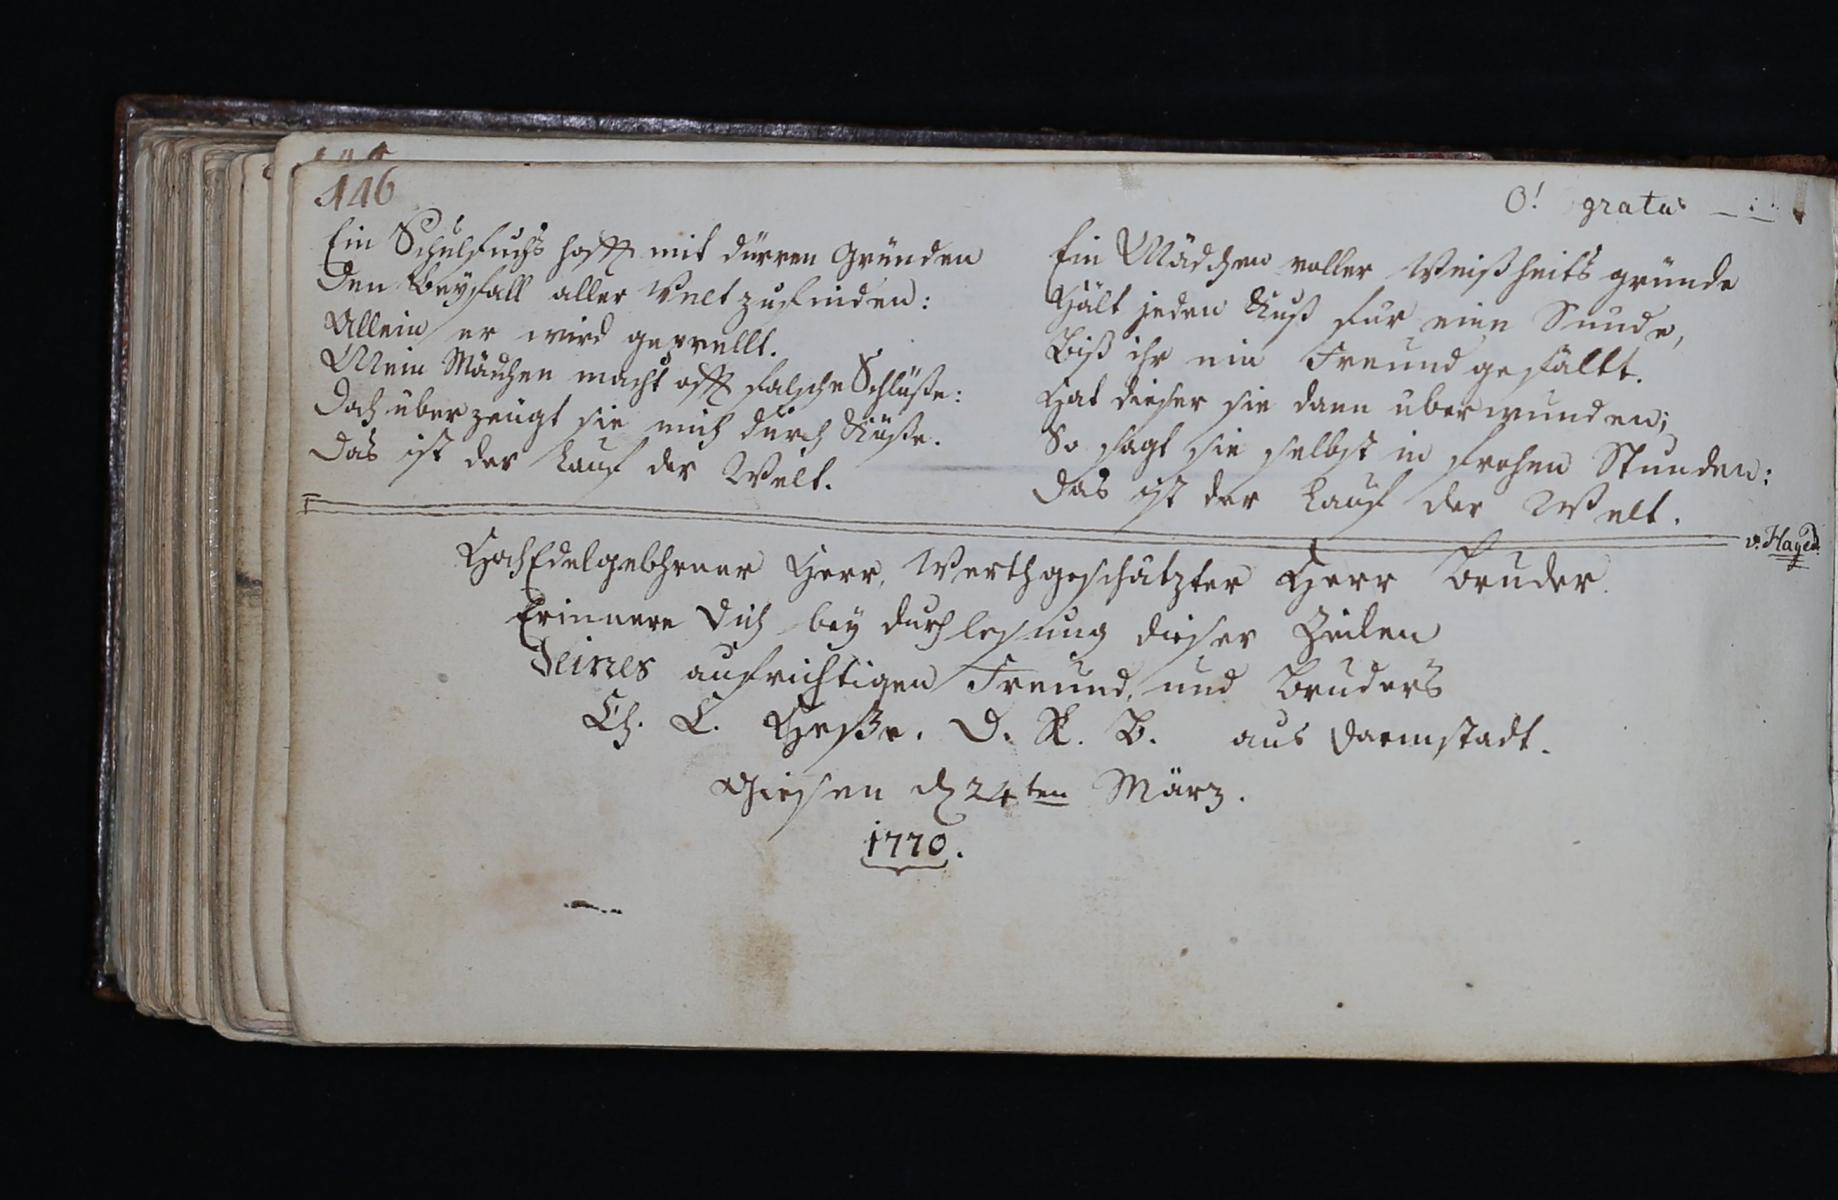 146
O! gratus
Ein Schulfuchs hofft mit dürren Gründen
Den Beyfall aller Welt zu finden:
Allein er wird geprellt.
Mein Mädchen macht offt falsche Schlüße:
Doch uberzeugt sie mich durch Küße.
Das ist der Lauf der Welt.
Ein Mädchen voller Weißheits gründe
Hält jeden Kuß fur eine Sunde,
Biß ihr ein Freund gefällt.
Hat dieser sie dann uberwunden;
So sagt sie selbst in frohen Stunden:
Das ist der Lauf der Welt.
v. Haged.
HochEdelgebohrner Herr, Werthgeschätzter Herr Bruder.
Erinnere Dich bey durchlesung dieser Zeilen
Deines aufrichtigen Freund, und Bruders
Ch. L. Heße. D. R. B. aus Darmstadt.
Giesen d 24ten März.
1770.